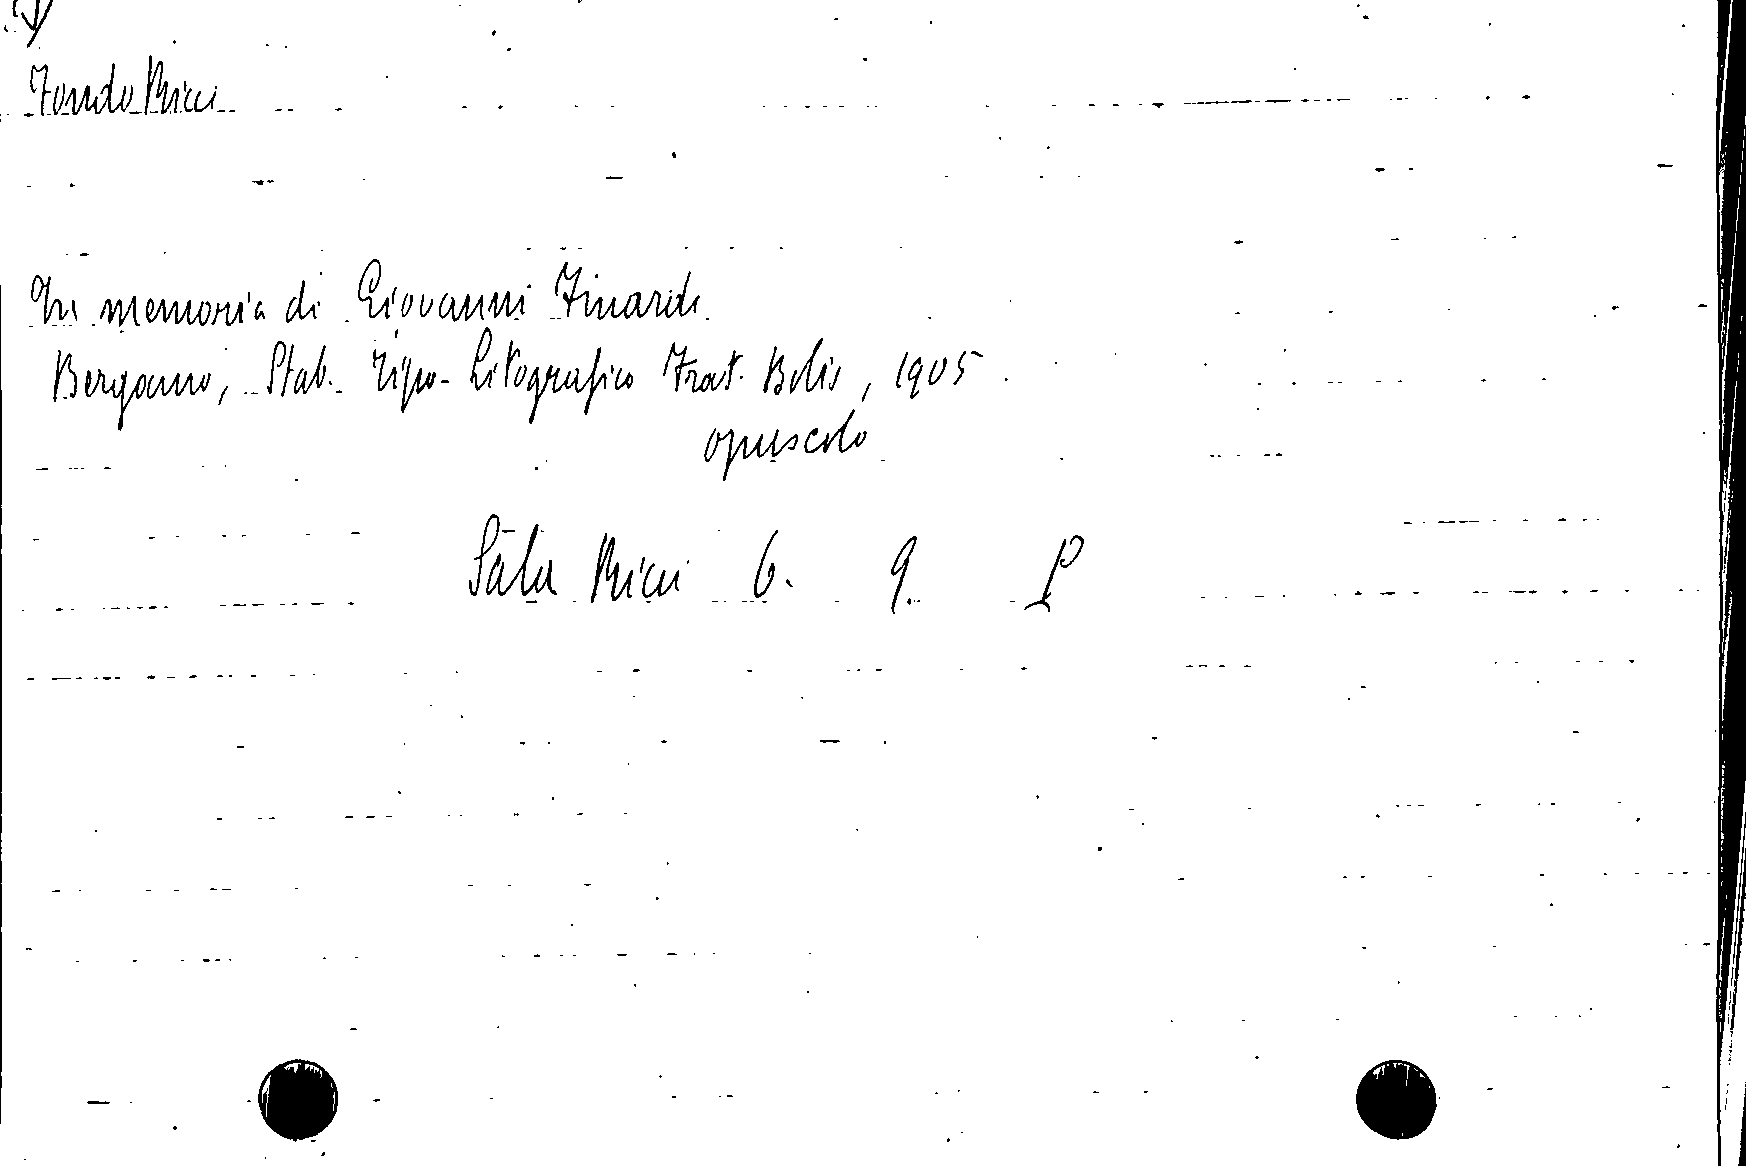 Fondo Ricci
In memoria di Giovanni Finardi
Bergamo, Stab. Tipo-Litografico Frat. Bolis, 1905
opuscolo
Sala Ricci 6. 9.